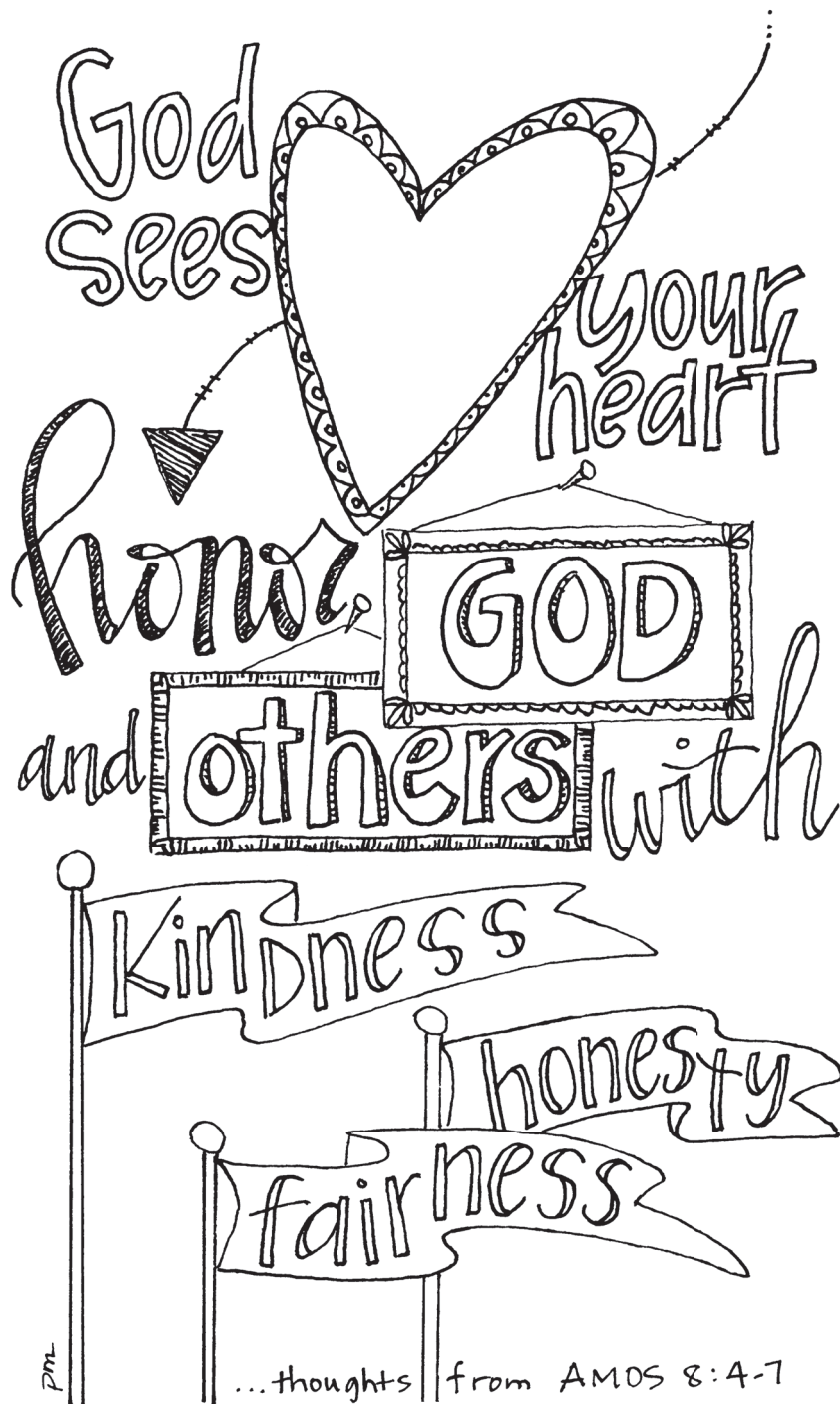 God
sees
your
heart
honor GOD
and others with
KinDness
honesty
fairness
pm
...thoughts from AMOS 8:4-7